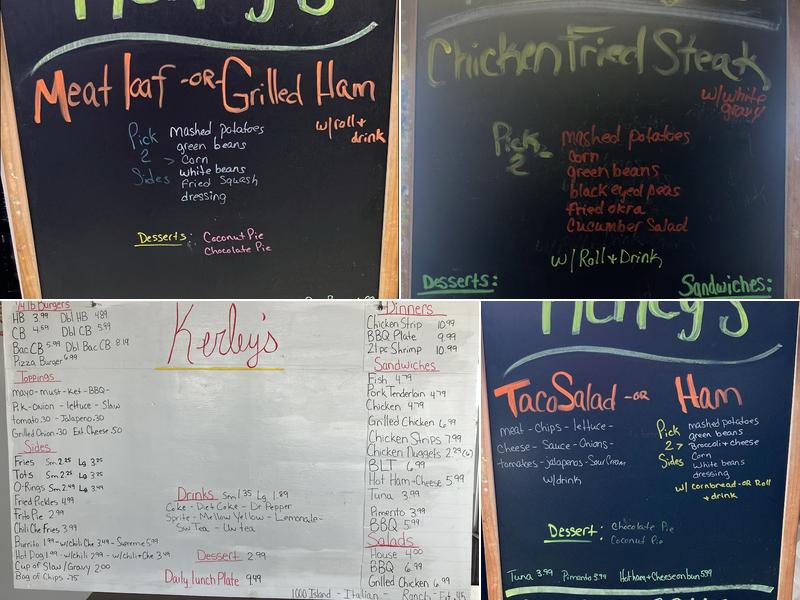 Meat loaf -OR- Grilled Ham
w/roll + drink
Pick 2 > Sides
mashed potatoes
green beans
Corn
white beans
Fried Squash
dressing
Desserts: Coconut Pie
Chocolate Pie
Chicken Fried Steak
w/white gravy
Pick 2 -
mashed potatoes
corn
green beans
black eyed peas
fried okra
Cucumber Salad
w/ Roll + Drink
Desserts:
Sandwiches:
1/4 lb Burgers
HB 3.99 Dbl HB 4.89
CB 4.59 Dbl CB 5.99
Bac CB 5.99 Dbl Bac CB 8.19
Pizza Burger 6.99
Toppings
mayo-must-ket-BBQ-
Pik-onion-lettuce-Slaw
tomato .30 - Jalapeno .30
Grilled Onion .30 Ext. Cheese .50
Sides
Fries Sm 2.25 Lg 3.25
Tots Sm 2.25 Lg 3.25
O-Rings Sm 2.49 Lg 3.49
Fried Pickles 4.99
Frito Pie 2.99
Chili Che Fries 3.99
Burrito 1.99 - w/chili Che 3.49 - Supreme 5.99
Hot Dog 1.99 - w/chili 2.99 - w/chili+Che 3.49
Cup of Slaw/Gravy 2.00
Bag of Chips .75
Kerley's
Drinks Sm 1.35 Lg 1.89
Coke - Diet Coke - Dr Pepper
Sprite - Mellow Yellow - Lemonade-
Sw Tea - Un tea
Dessert 2.99
Daily lunch Plate 9.49
Dinners
Chicken Strip 10.99
BBQ Plate 9.99
21 pc Shrimp 10.99
Sandwiches
Fish 4.79
Pork Tenderloin 4.79
Chicken 4.79
Grilled Chicken 6.99
Chicken Strips 7.99
Chicken Nuggets 2.29(6)
BLT 6.99
Hot Ham+Cheese 5.99
Tuna 3.99
Pimento 3.99
BBQ 5.99
Salads
House 4.00
BBQ 6.99
Grilled Chicken 6.99
1000 Island - Italian - Ranch - Ext .45
Henry's
Taco Salad -OR Ham
meat - chips - lettuce -
cheese - Sauce - Onions -
tomatoes - jalapenos - Sour Cream
w/drink
Pick 2 > Sides
mashed potatoes
green beans
Broccoli + cheese
Corn
White beans
dressing
w/ cornbread -OR Roll
+ drink
Dessert: Chocolate Pie
Coconut Pie
Tuna 3.99 Pimento 3.99 Hot ham + Cheese on bun 5.99